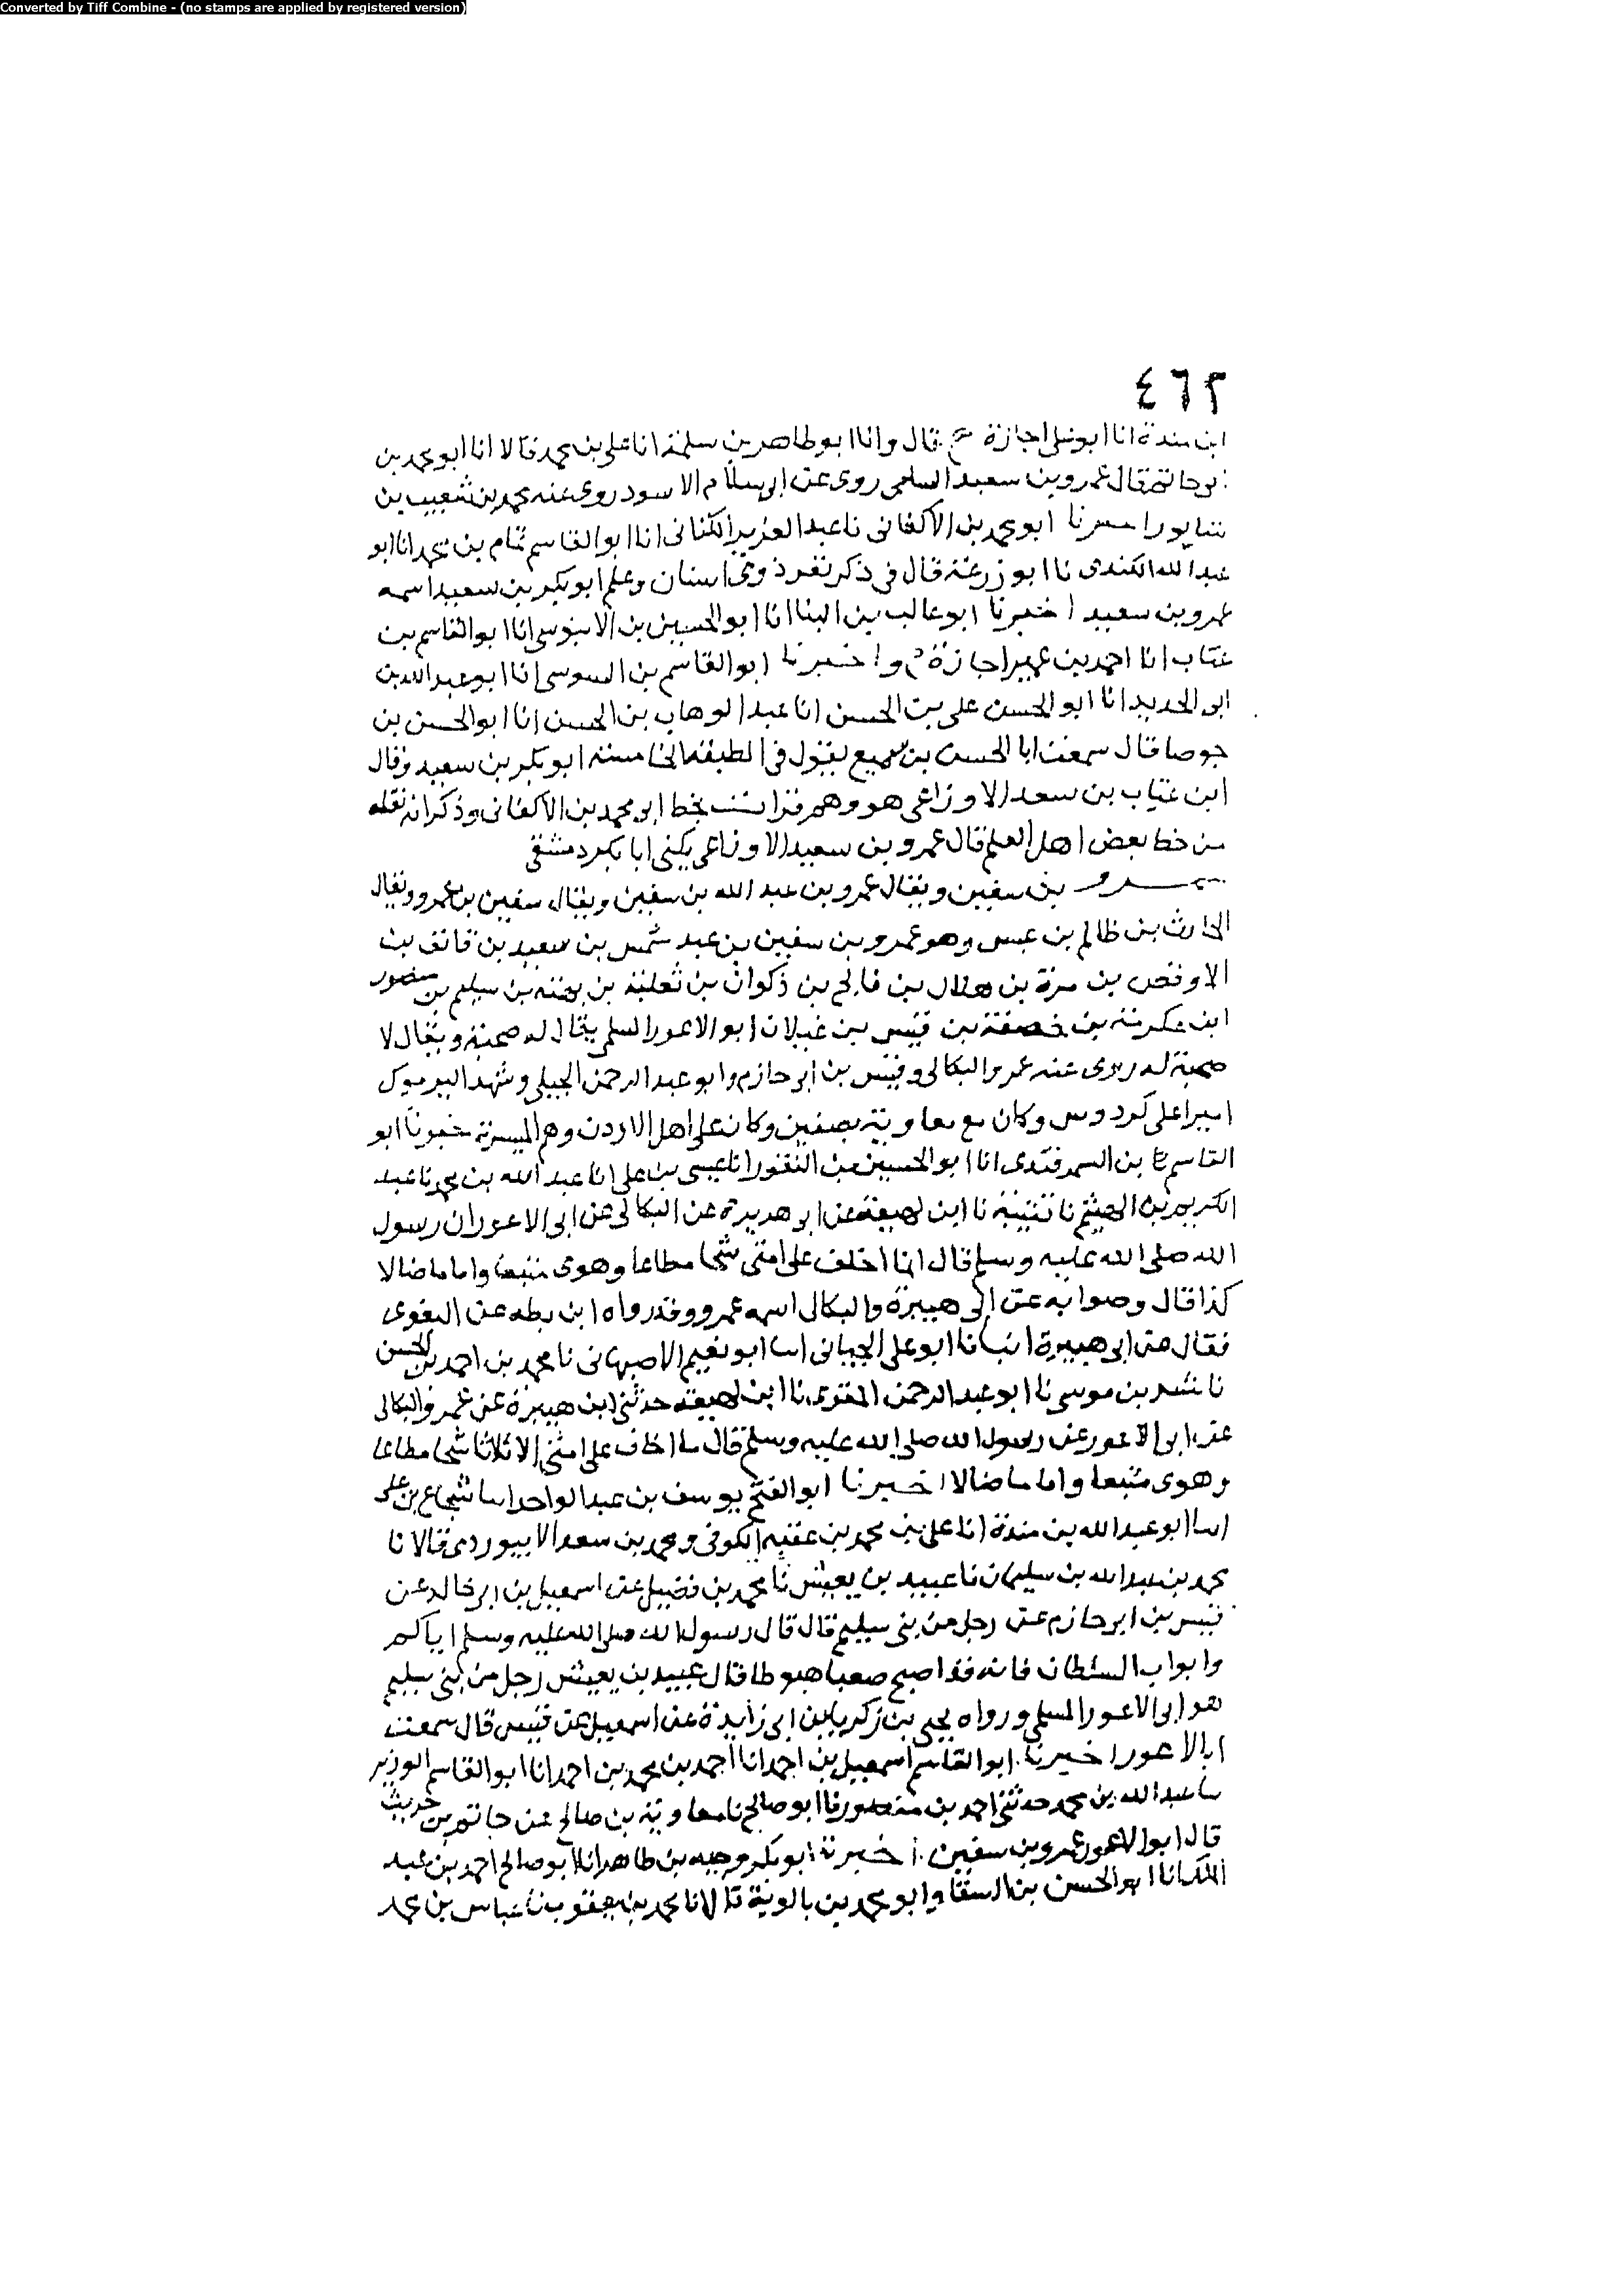 Converted by Tiff Combine - (no stamps are applied by registered version)
٤٦٢
ابن مندة انا ابو على اجازة ح قال وانا ابو طاهر بن سلمة انا على بن محمد قالا انا ابو محمد بن
ابى حاتم قال عمرو بن سعيد السلمى روى عن ابى سلام الاسود روى عنه محمد بن شعيب بن
شابور اخبرنا ابو محمد بن الاكفانى نا عبد العزيز الكنانى انا ابو القاسم تمام بن محمد انا ابو
عبد الله الكندى نا ابو زرعة قال فى ذكر نفر ذوى اسنان وعلم ابو بكر بن سعيد اسمه
عمرو بن سعيد اخبرنا ابو غالب بن البنا انا ابو الحسين بن الابنوسى انا ابو القاسم بن
عتاب انا احمد بن عمير اجازة ح واخبرنا ابو القاسم بن السوسى انا ابو عبد الله بن
ابى الحديد انا ابو الحسن على بن الحسن انا عبد الوهاب بن الحسن انا ابو الحسن بن
جوصا قال سمعت ابا الحسن بن سميع يقول فى الطبقة الخامسة ابو بكر بن سعيد وقال
ابن عتاب بن سعد الاوزاعى هو وهم قرات بخط ابى محمد بن الاكفانى وذكر انه نقله
من خط بعض اهل العلم قال عمرو بن سعيد الاوزاعى يكنى ابا بكر دمشقى
عمرو بن سفين ويقال عمرو بن عبد الله بن سفين ويقال سفين بن عمرو ويقال
الحارث بن ظالم بن عبس وهو عمرو بن سفين بن عبد شمس بن سعيد بن قانف بن
الاوقص بن مرة بن هلال بن فالج بن ذكوان بن ثعلبة بن بهثه بن سليم بن منصور
ابن عكرمة بن خصفة بن قيس بن غيلان ابو الاعور السلمى يقال له صحبة ويقال لا
صحبة له روى عنه عمرو البكالى وقيس بن ابى حازم وابو عبد الرحمن الجبلى وشهد اليرموك
اميرا على كردوس وكان مع معاوية بصفين وكان على اهل الاردن وهم الميسرة خبرنا ابو
القاسم بن السمرقندى انا ابو الحسين بن النقور انا عيسى بن على انا عبد الله بن محمد نا عبد
الكريم بن الهيثم نا قتيبة نا ابن لهيعة عن ابى هديرة عن البكالى عن ابى الاعور ان رسول
الله صلى الله عليه وسلم قال انما اخلف على امتى شحا مطاعا وهوى متبعا واماما ضالا
كذا قال وصوابه عن ابى هبيرة والبكالى اسمه عمرو وقد رواه ابن بطه عن البغوى
فقال عن ابى هبيرة انبانا ابو على انا ابو نعيم الاصبهانى نا محمد بن احمد بن الحسن
نا بشر بن موسى نا ابو عبد الرحمن المقرى نا ابن لهيعة حدثنى ابن هبيرة عن عمرو البكالى
عن ابى الاعور عن رسول الله صلى الله عليه وسلم قال ما اخاف على امتى الا ثلاثا شحا مطاعا
وهوى متبعا واماما ضالا اخبرنا ابو الفتح يوسف بن عبد الواحد انا شجاع بن على
انا ابو عبد الله بن مندة انا على بن محمد بن عقبه الكوفى ومحمد بن سعد الابيوردى قالا نا
محمد بن عبد الله بن سليمان نا عبيد بن يعيش نا محمد بن فضيل عن اسمعيل بن ابى خالد عن
قيس بن ابى حازم عن رجل من بنى سليم قال قال رسول الله صلى الله عليه وسلم اياكم
وابواب السلطان فانه قد اصبح صعبا هبوطا قال عبيد بن يعيش رجل من بنى سليم
هو ابى الاعور السلمى ورواه يحيى بن زكريا بن ابى زايدة عن اسمعيل عن قيس قال سمعت
ابا الاعور اخبرنا ابو القاسم اسمعيل بن احمد انا احمد بن محمد بن احمد انا ابو القاسم الوزير
نا عبد الله بن محمد حدثنى احمد بن منصور نا ابو صالح نا معاوية بن صالح عن حاتم بن حريث
قال ابو الاعور عمرو بن سفين اخبرنا ابو بكر وجيه بن طاهر انا ابو صالح احمد بن عبد
الملك انا ابو الحسن بن السقا وابو محمد بن بالوية قالا نا محمد بن يعقوب نا عباس بن محمد